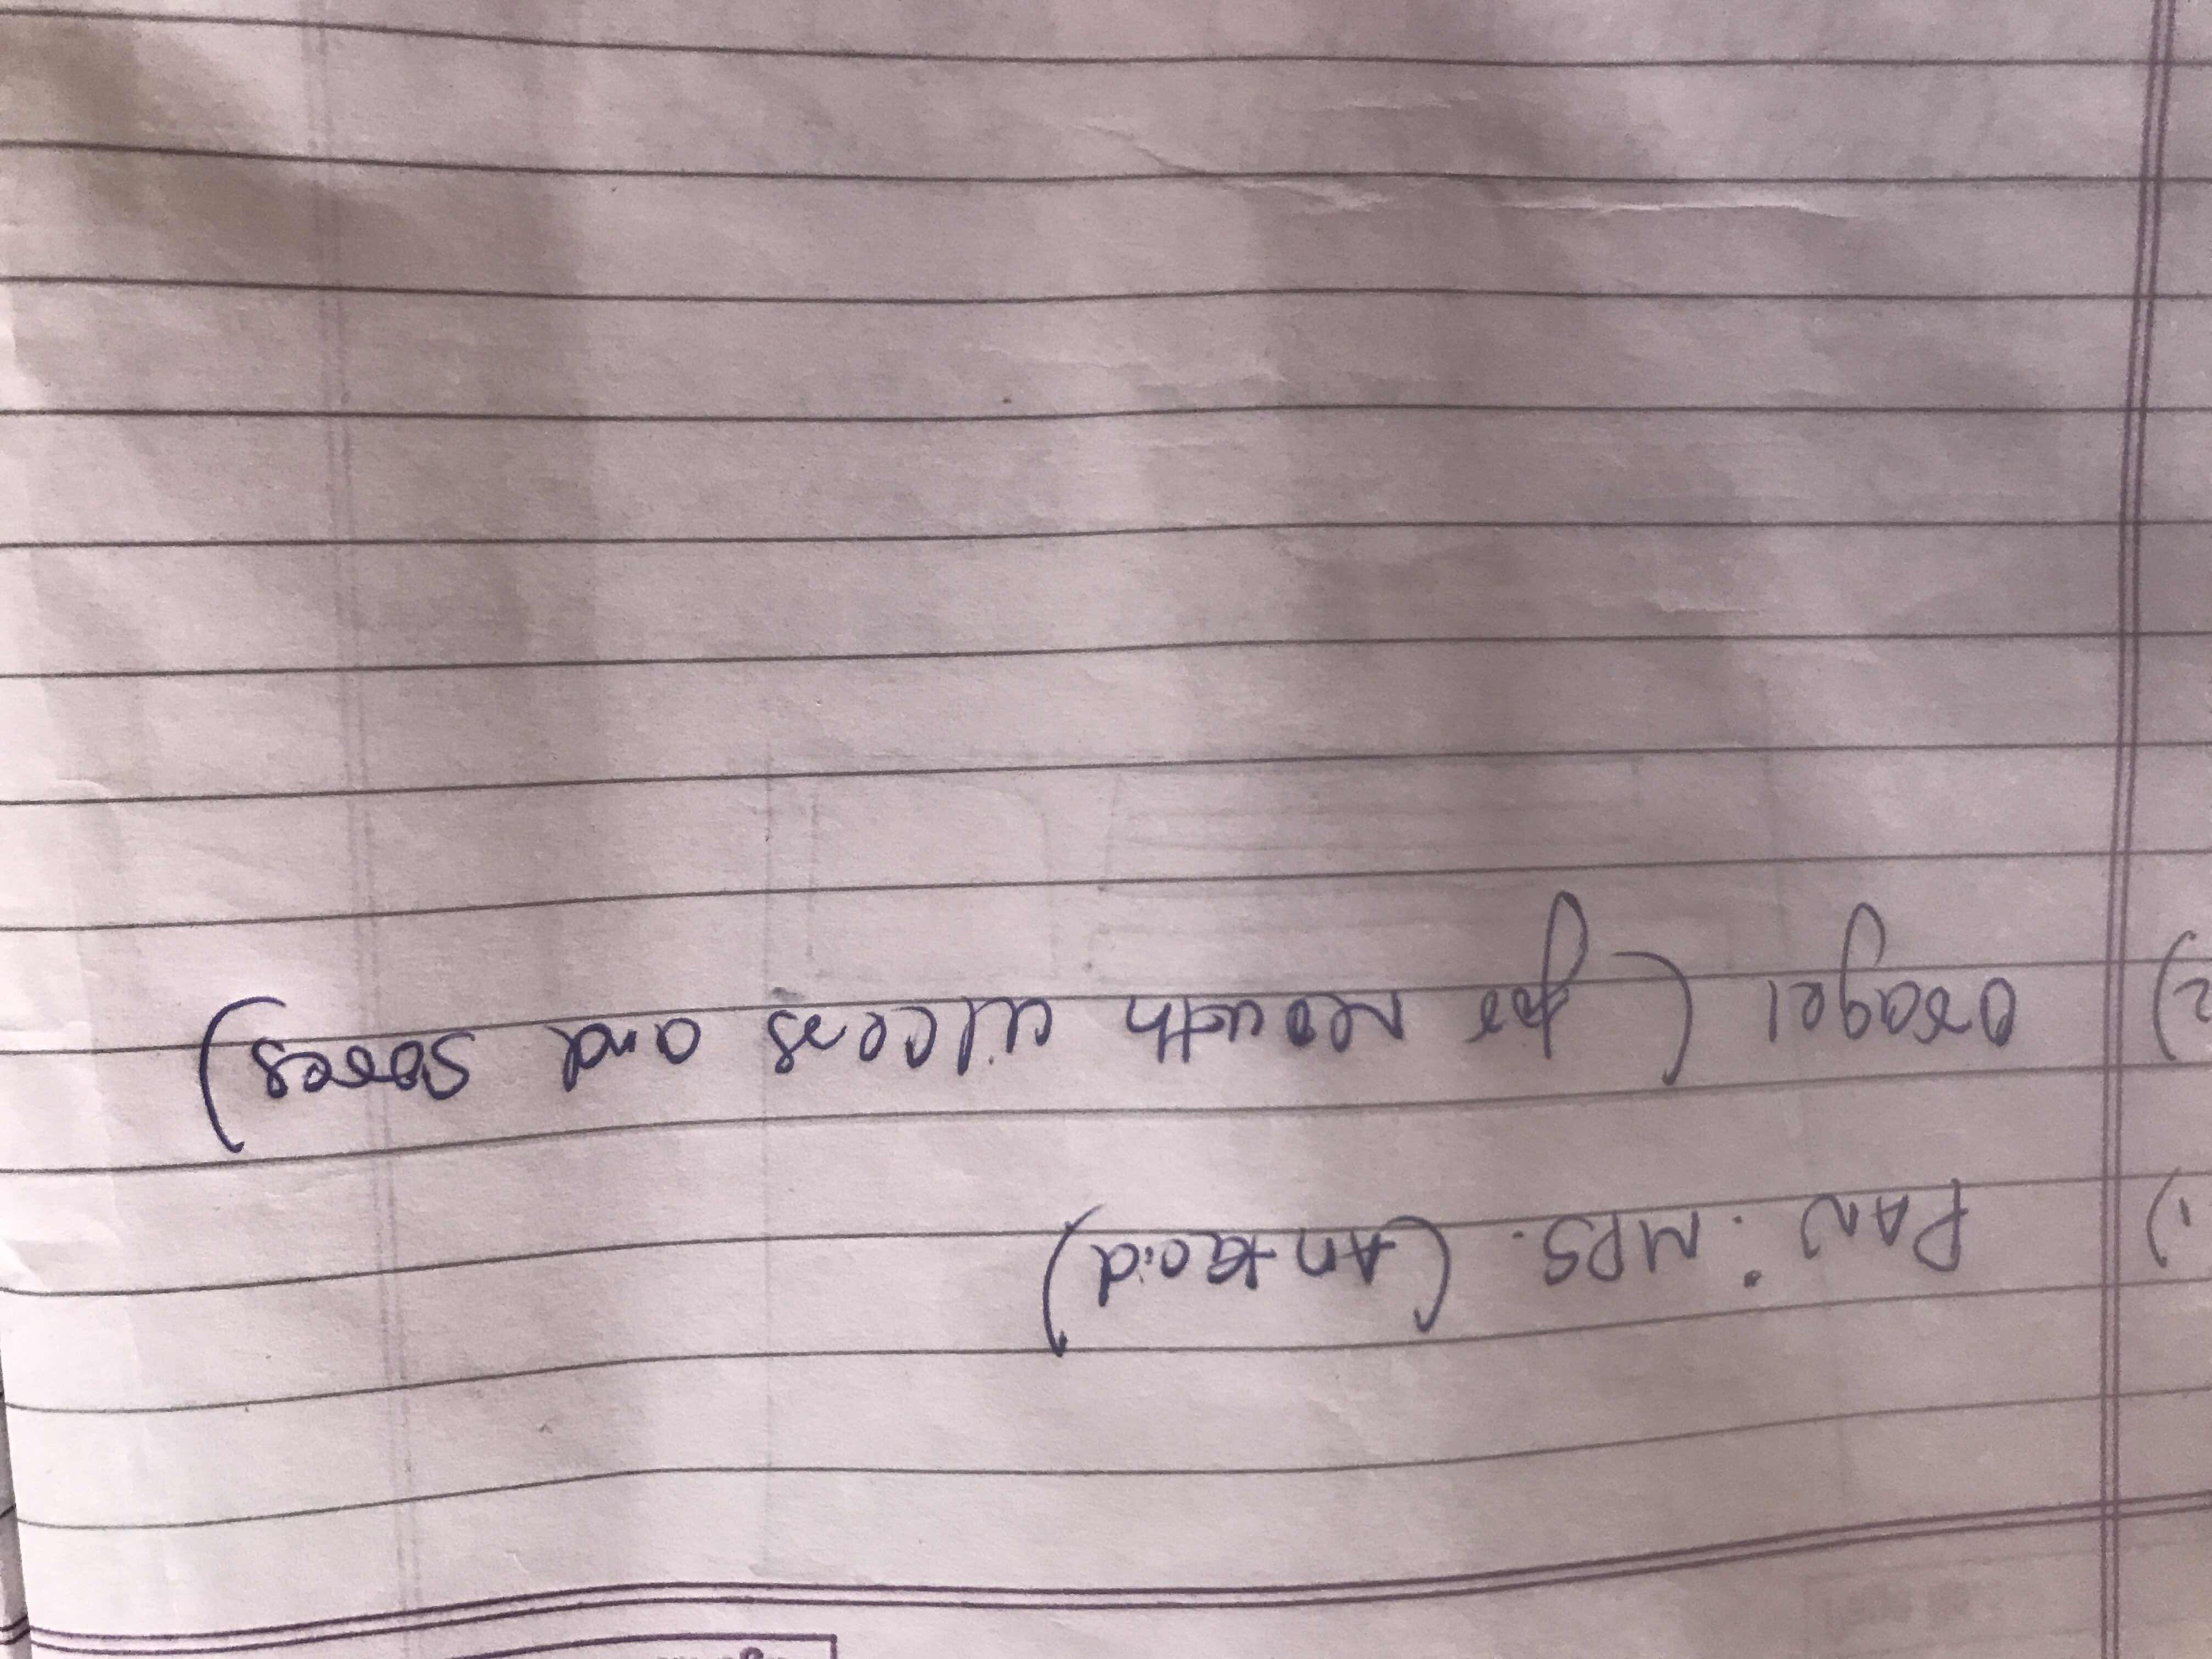 1) PAN : MPS. (Antacid)
2) oragel (for Mouth ulcers and sores)